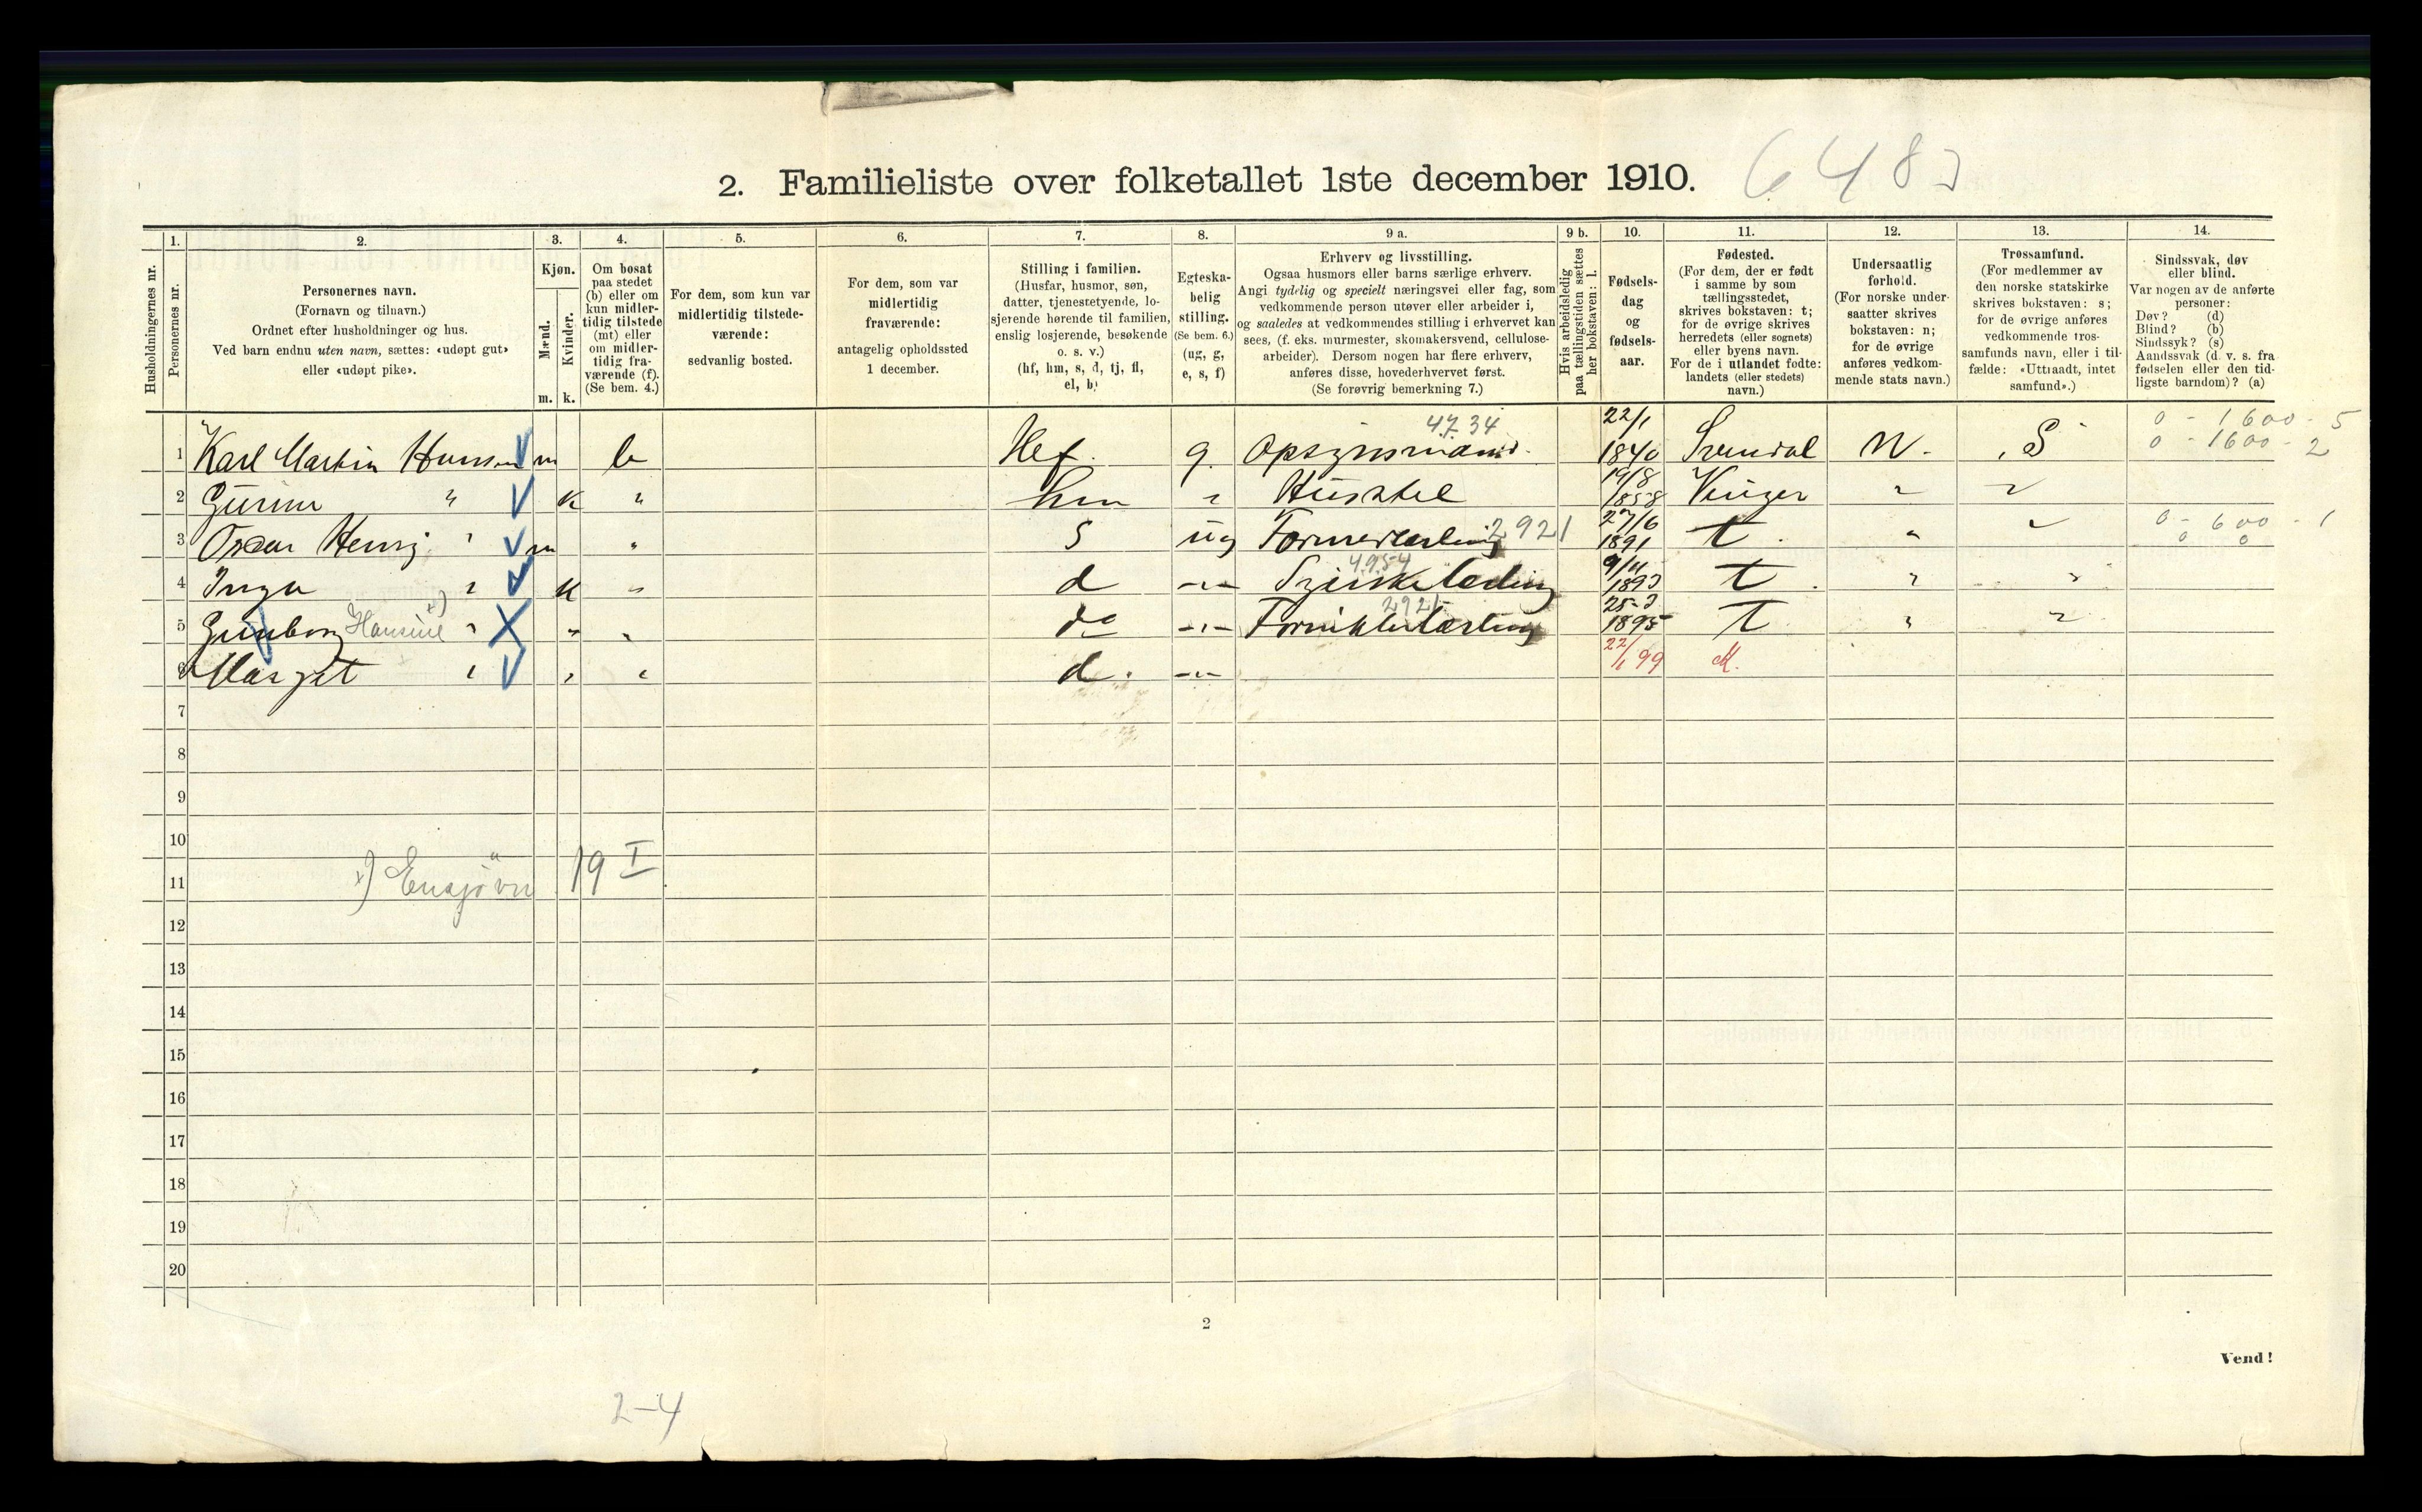 2. Familieliste over folketallet 1ste december 1910. 6483
Husholdningernes nr.
1. Personernes nr.
2. Personernes navn.
(Fornavn og tilnavn.)
Ordnet efter husholdninger og hus.
Ved barn endnu uten navn, sættes: «udøpt gut»
eller «udøpt pike».
3. Kjøn.
Mænd. m.
Kvinder. k.
4. Om bosat
paa stedet
(b) eller om
kun midler-
tidig tilstede
(mt) eller
om midler-
tidig fra-
værende (f).
(Se bem. 4.)
5. For dem, som kun var
midlertidig tilstede-
værende:
sedvanlig bosted.
6. For dem, som var
midlertidig
fraværende:
antagelig opholdssted
1 december.
7. Stilling i familien.
(Husfar, husmor, søn,
datter, tjenestetyende, lo-
sjerende hørende til familien,
enslig losjerende, besøkende
o. s. v.)
(hf, hm, s, d, tj, fl,
el, b)
8. Egteska-
belig
stilling.
(Se bem. 6.)
(ug, g,
e, s, f)
9 a. Erhverv og livsstilling.
Ogsaa husmors eller barns særlige erhverv.
Angi tydelig og specielt næringsvei eller fag, som
vedkommende person utøver eller arbeider i,
og saaledes at vedkommendes stilling i erhvervet kan
sees, (f. eks. murmester, skomakersvend, cellulose-
arbeider). Dersom nogen har flere erhverv,
anføres disse, hovederhvervet først.
(Se forøvrig bemerkning 7.)
9 b. Hvis arbeidsledig
paa tællingstiden sættes
her bokstaven: l.
10. Fødsels-
dag
og
fødsels-
aar.
11. Fødested.
(For dem, der er født
i samme by som
tællingsstedet,
skrives bokstaven: t;
for de øvrige skrives
herredets (eller sognets)
eller byens navn.
For de i utlandet fødte:
landets (eller stedets)
navn.)
12. Undersaatlig
forhold.
(For norske under-
saatter skrives
bokstaven: n;
for de øvrige
anføres vedkom-
mende stats navn.)
13. Trossamfund.
(For medlemmer av
den norske statskirke
skrives bokstaven: s;
for de øvrige anføres
vedkommende tros-
samfunds navn, eller i til-
fælde: «Uttraadt, intet
samfund».)
14. Sindssvak, døv
eller blind.
Var nogen av de anførte
personer:
Døv? (d)
Blind? (b)
Sindssyk? (s)
Aandssvak (d. v. s. fra
fødselen eller den tid-
ligste barndom)? (a)
4734 22/1 0 - 1600 - 5
1 Karl Martin Hansen m b Hef. g. Opsynsmand. 1840 N. S 0 - 1600 - 2
2 " K " hm " 19/8 1858 Vinger " "
3 Oskar Henry " m " S ug Formerlærling 2921 27/6 1891 t. " " 0 - 600 - 1
0 0
4 Inga " K " d -"- 4954 9/11 1893 t. " "
5 Gunborg Hansine x) " " " do -"- 2921 25-3 1895 t " "
6 Margit " " " d. -"- 22/1 99 M.
7
8
9
10
11 x) Ensjøvn 19 I
12
13
14
15
16
17
18
19
20
2
Vend!
2-4